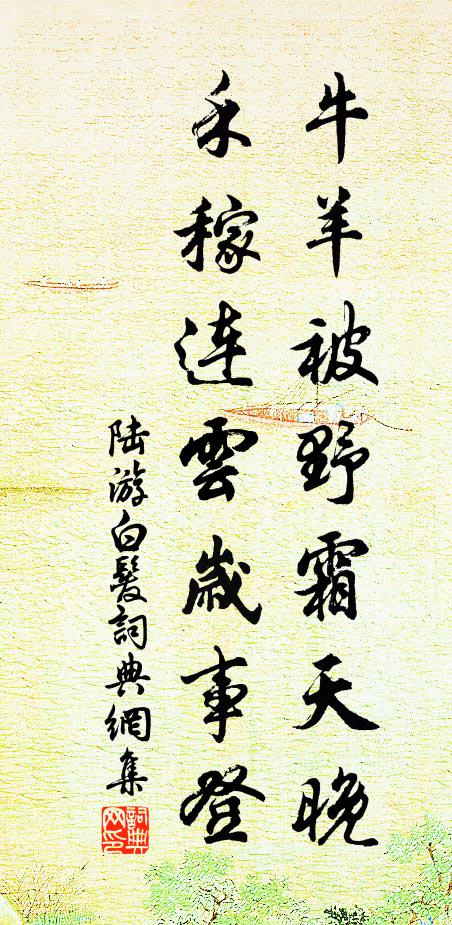 牛羊被野霜天晚
禾稼連雲歲事登
陆游白髮詞典網集
詞典網印